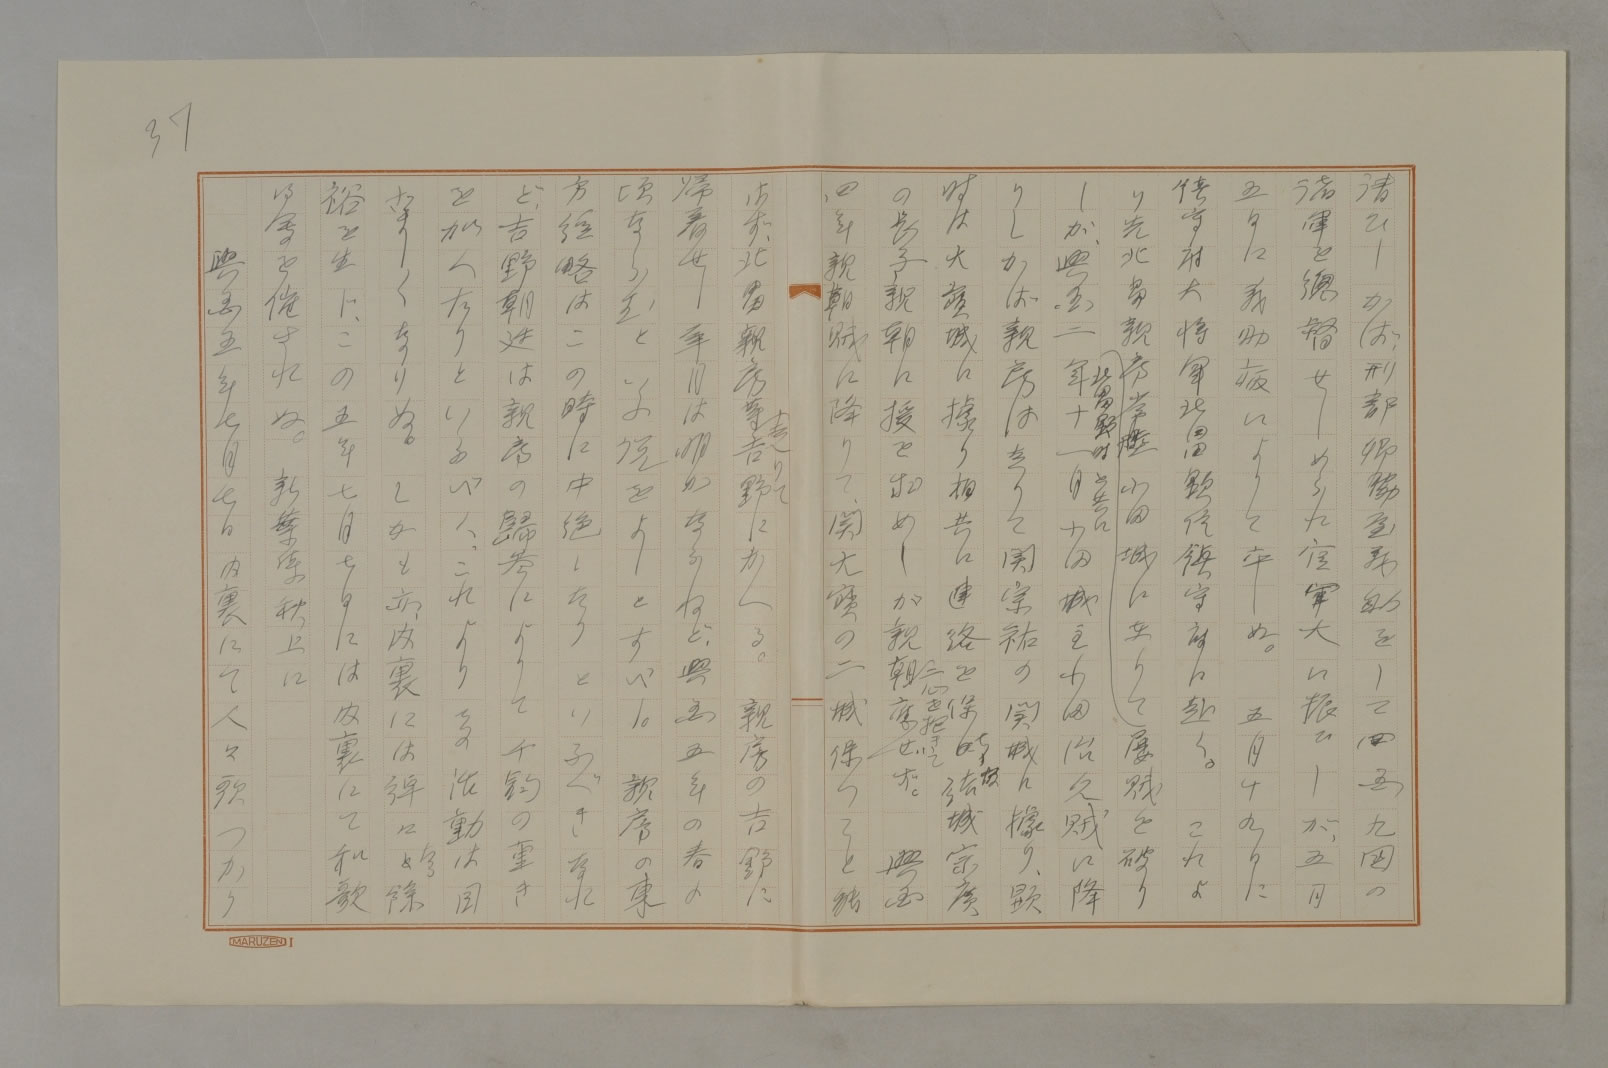 37
請ひしかば、刑部卿脇屋義助をして四国九国の
諸軍を總督せしめられ官軍大に振ひしが、五月
五日に義助病によりて卒しぬ。五月十九日に
陸奥守大将軍北畠顕信鎮守府に赴く。これよ
り先北畠親房常陸小田城にありて屡賊を破り
しが、興国二年十一月小田城主小田治久賊に降
りしかば親房は去りて関宗祐の関城に據り、顕
時は大寶城に據り相共に連絡を保ち結城宗廣
の長子親朝に援を求めしが親朝二心を抱きて應ぜず。興国
四年親朝賊に降りて、関大寶の二城保つこと能
はず、北畠親房等吉野にかへる。親房の吉野に
帰着せし年月は明かならねど、興国五年の春の
頃ならむといふ説をよしとすべし。親房の東
方経略はこの時に中絶しをりといふべきなれ
ど、吉野朝廷は親房の歸参によりて千鈞の重き
を加へたりといふべく、これよりその活動は目
ざましくなりぬ。しかも亦内裏には綽々たる餘
裕を生じ、この五年七月七日には内裏にて和歌
御会を催されぬ。新葉集秋上に
興国五年七月七日内裏にて人々歌つかう
MARUZEN I